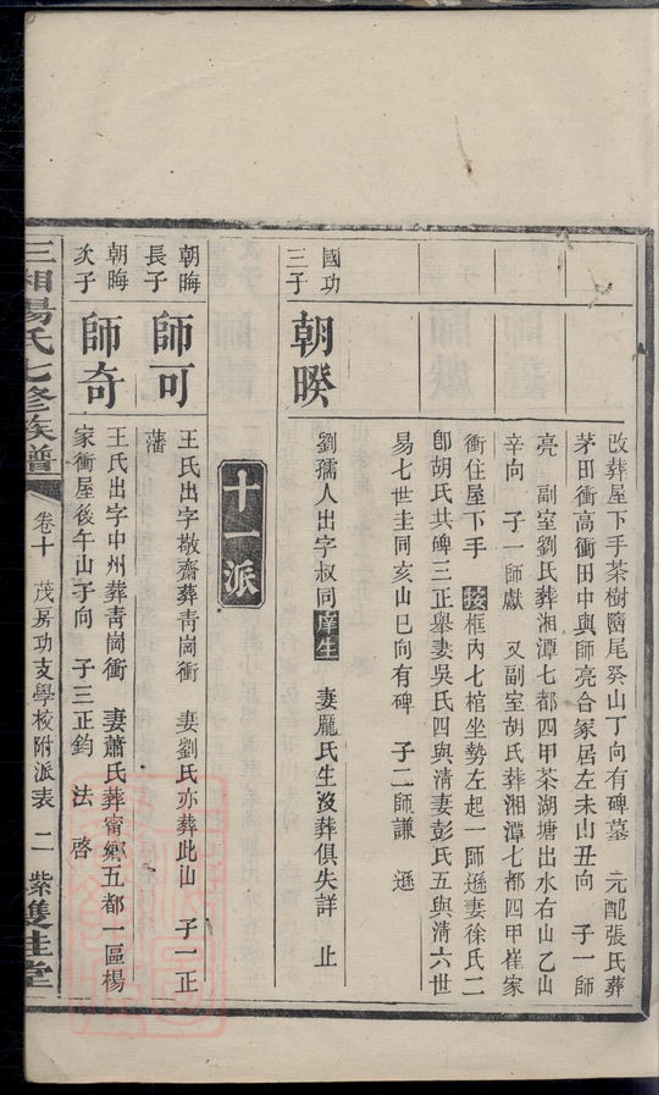 改葬屋下手茶樹窩尾癸山丁向有碑墓　元配張氏葬
茅田衝高衝田中與師亮合冢居左未山丑向　子一師
亮　副室劉氏葬湘潭七都四甲茶湖塘出水右山乙山
辛向　子一師獻　又副室胡氏葬湘潭七都四甲崔家
衝住屋下手　按框內七棺坐勢左起一師遜妻徐氏二
卽胡氏共碑三正舉妻吳氏四與淸妻彭氏五與淸六世
易七世圭同亥山巳向有碑　子二師謙　遜
國功
三子
朝暌
劉孺人出字叔同庠生　妻龐氏生沒葬俱失詳　止
十一派
朝晦
長子
師可
王氏出字敬齋葬靑崗衝　妻劉氏亦葬此山　子一正
藩
朝晦
次子
師奇
王氏出字中州葬靑崗衝　妻蕭氏葬甯鄉五都一區楊
家衝屋後午山子向　子三正鈞　法　啓
三湘楊氏七修族譜
卷十　茂房功支學校附派表　二
紫雙桂堂